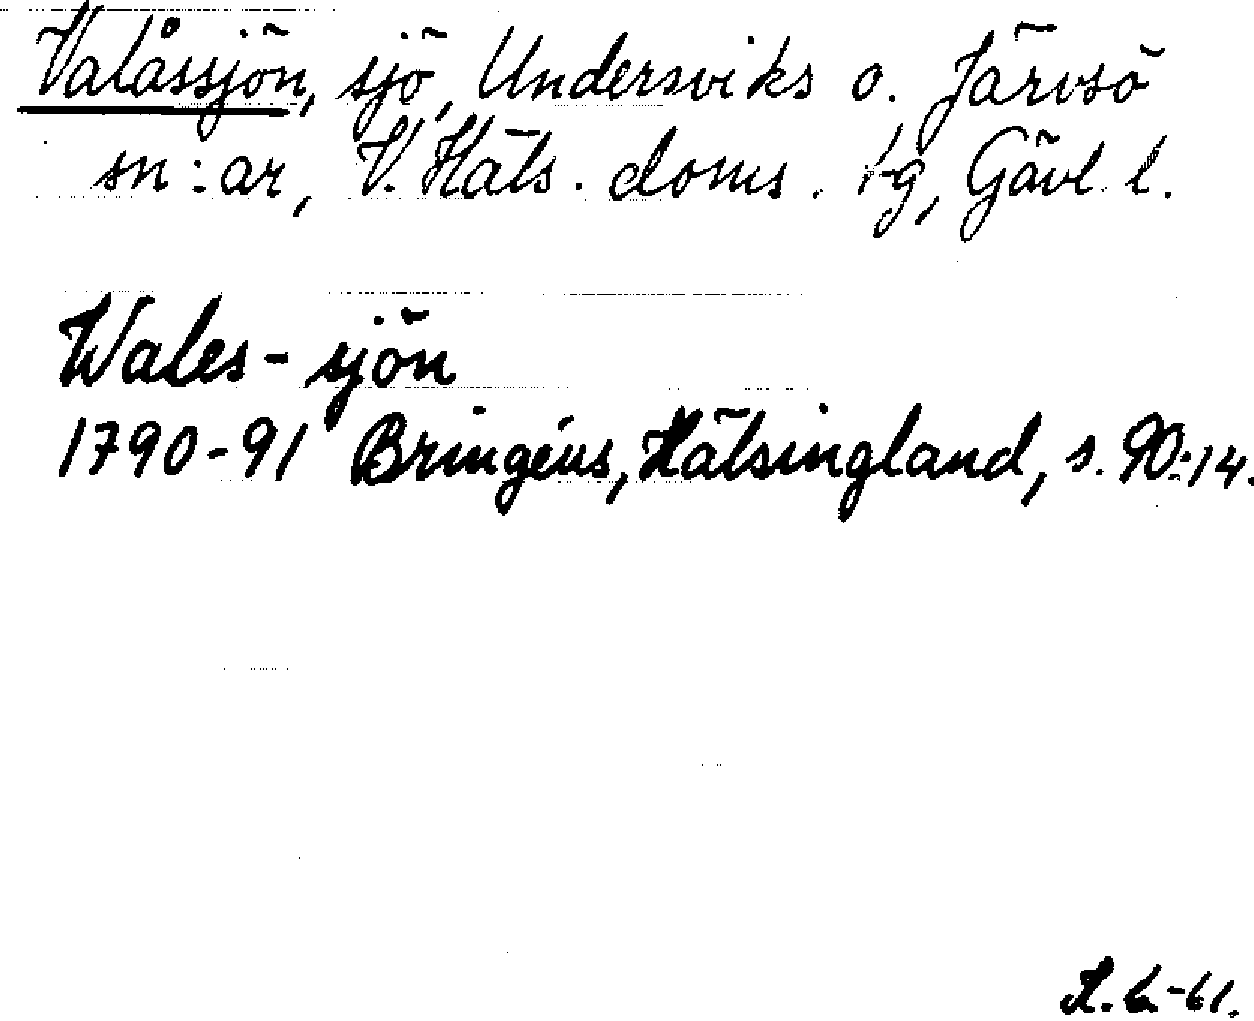 Valåssjön, sjö, Undersviks o. Järvsö
sn:ar, V. Häls. doms. tg, Gävl. l.
Wales-sjön
1790-91 Bringéus, Hälsingland, s. 90:14.